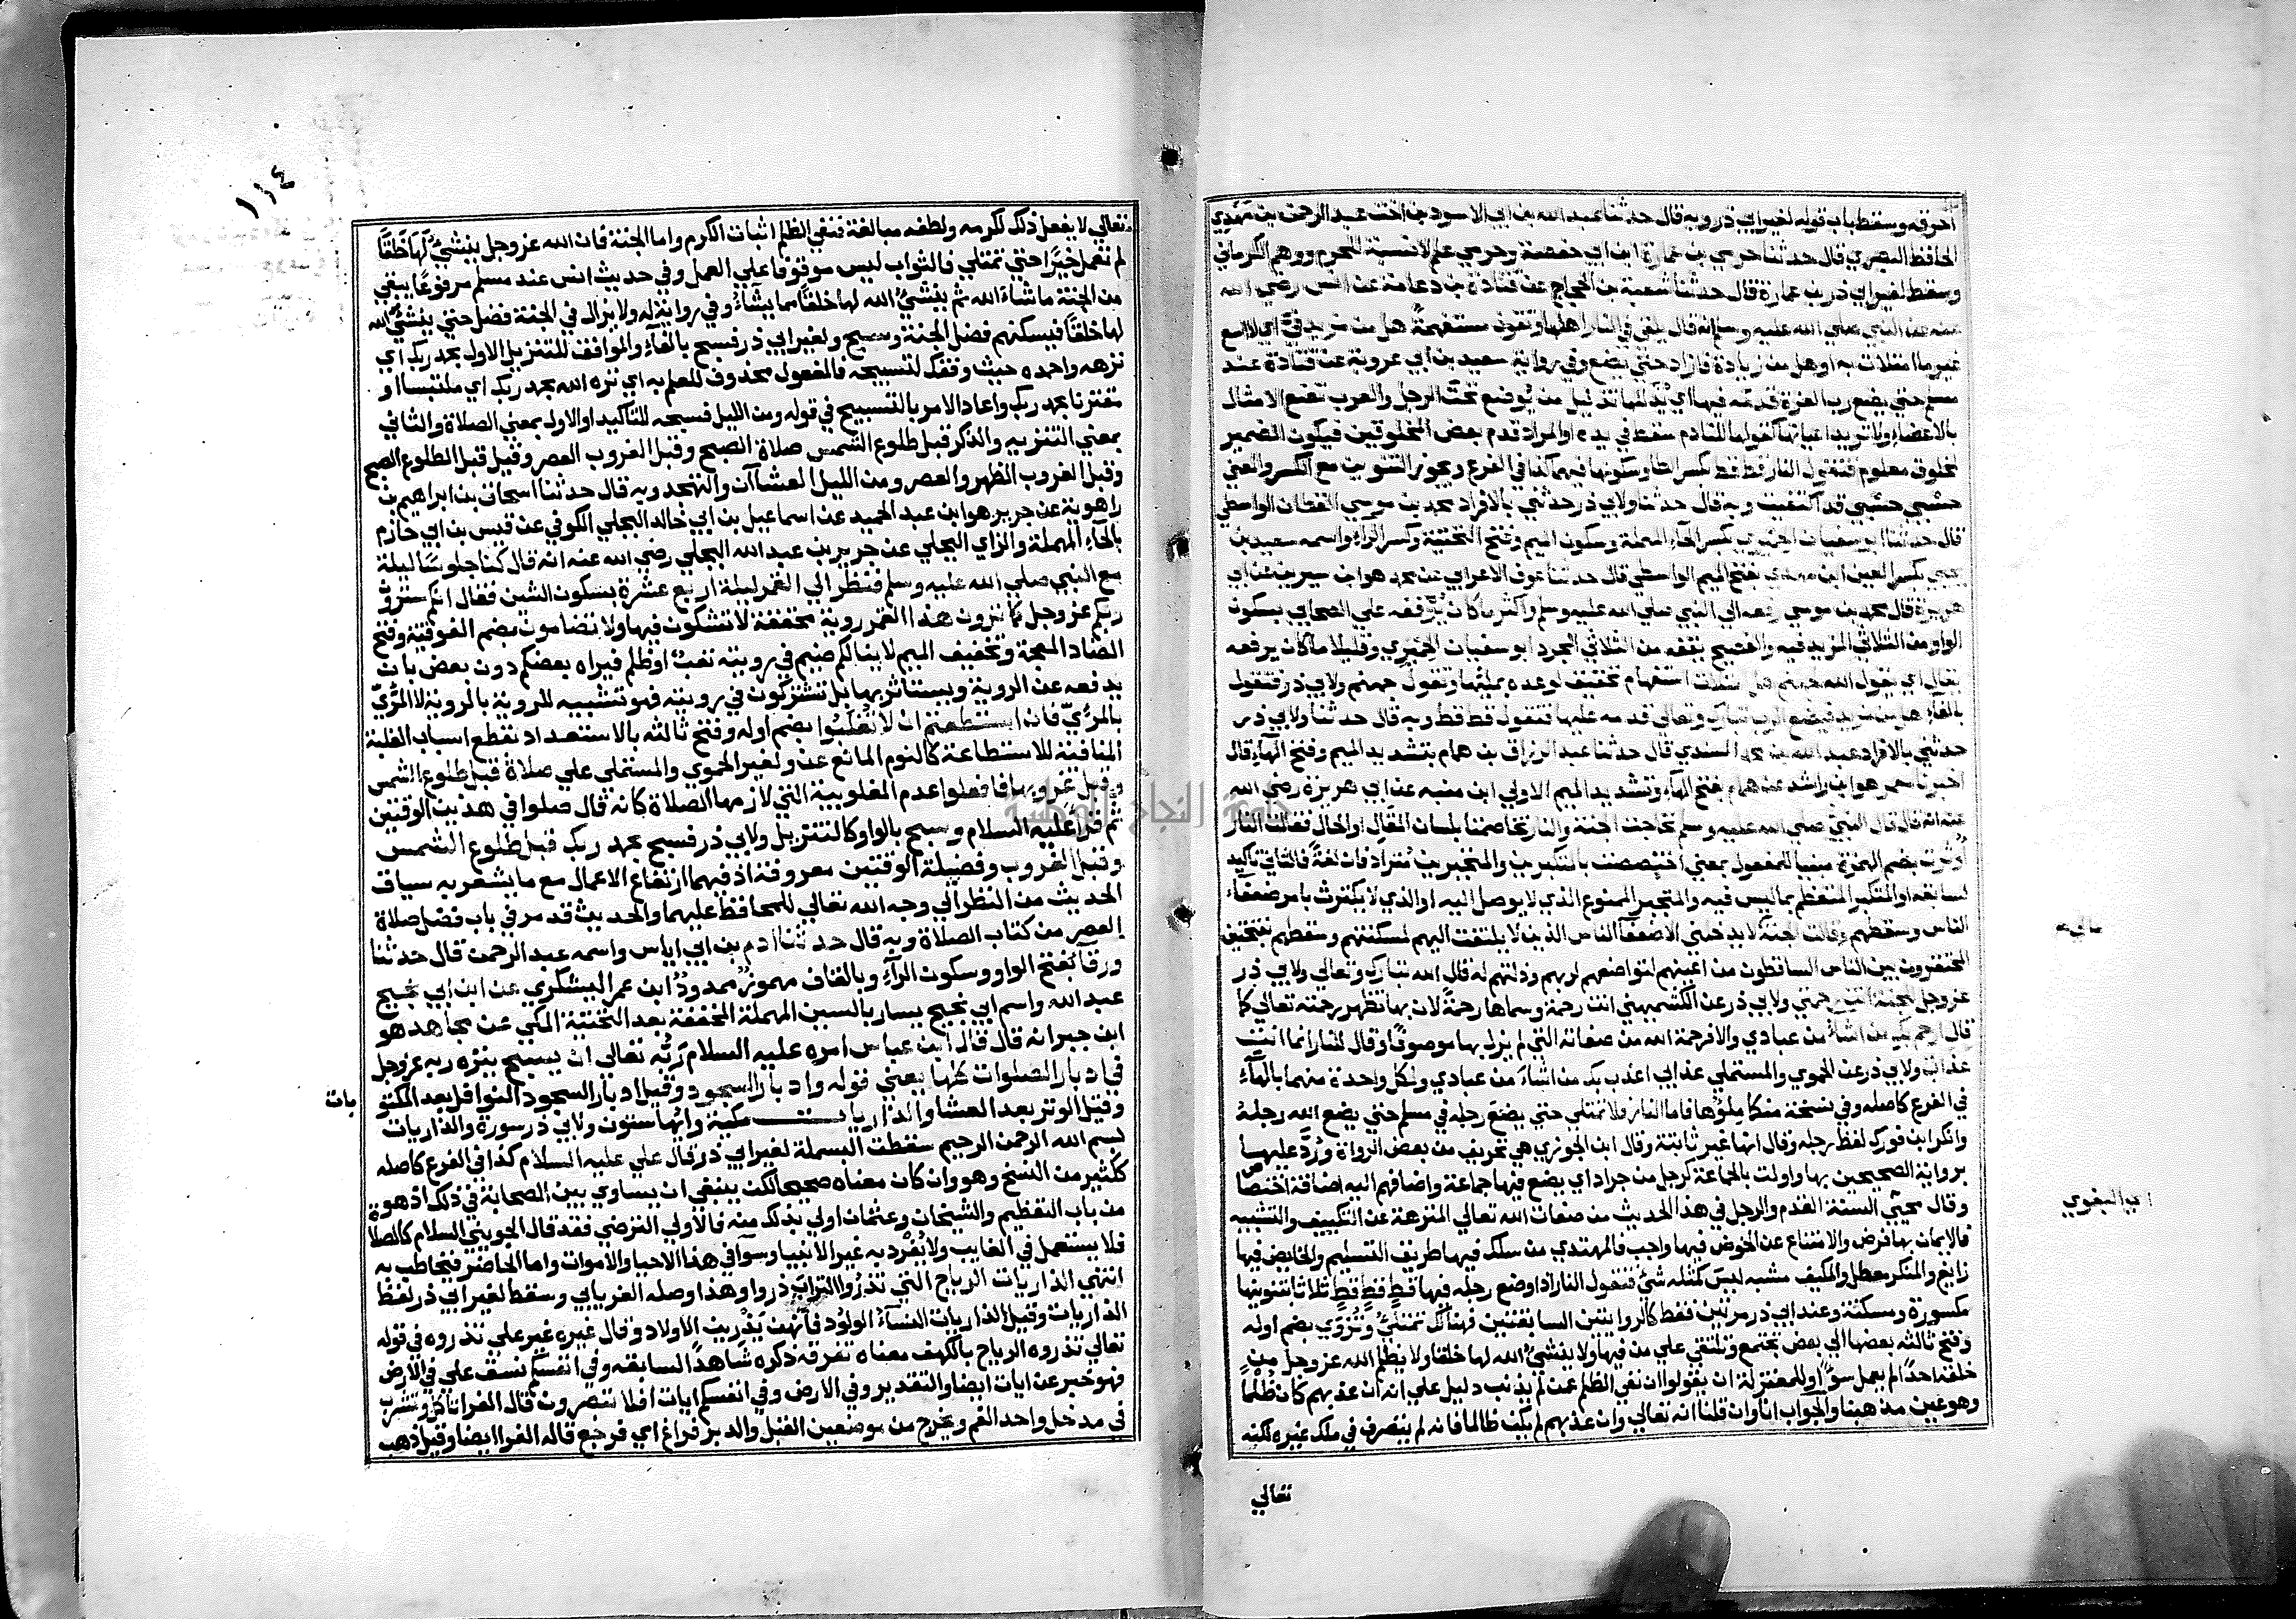 احرقه وسقط باب قوله لغير ابي ذر وبه قال حدثنا عبد الله بن ابي الاسود بن اخت عبد الرحمن بن مهدي
الحافظ البصري قال حدثنا حرمي بن عمارة ابن ابي حفصة وحرمي علم لا نسبة للحرم ووهم الكرماني
وسقط لغير ابي ذر بن عمارة قال حدثنا شعبة بن الحجاج عن قتادة بن دعامة عن انس رضي الله
عنه عن النبي صلي الله عليه وسلم انه قال يلقي في النار اهلها وتقول مستفهمة هل من مزيد في اي لا اسع
غير ما امتلات به او هل من زيادة فازاد حتي يضع وفي رواية سعيد بن ابي عروبة عن قتادة عند
مسلم حتي يضع رب العزة قدمه فيها اي يذللها تذليل من يوضع تحت الرجل والعرب تضع الامثال
بالاعضاء ولا تريد اعيانها كقولها للنادم سقط في يده او المراد قدم بعض المخلوقين فيكون الضمير
لمخلوق معلوم فتقول النار قط قط بكسر الطا وسكونها فيهما كذا في الفرع ويجوز التنوين مع الكسر والمعني
حسبي حسبي قد اكتفيت وبه قال حدثنا ولابي ذر حدثني بالافراد محمد بن موسي القطان الواسطي
قال حدثنا ابو سفيان الحميري بكسر الحاء المهملة وسكون الميم وفتح التحتية وكسر الراء واسمه سعيد بن
يحيي بكسر العين ابن مهدي بفتح الميم الواسطي قال حدثنا عوف الاعرابي عن محمد هو ابن سيرين عن ابي
هريرة قال محمد بن موسي رفعه الي النبي صلي الله عليه وسلم واكثر ما كان يوقفه علي الصحابي بسكون
الواو من الثلاثي المزيد فيه والفصيح يقفه من الثلاثي المجرد ابو سفيان الحميري وقليلا ما كان يرفعه
يقال اي يقول الله لجهنم هل امتلات استفهام تحقيق لوعده بملئها وتقول جهنم ولابي ذر فتقول
بالفاء هل من مزيد فيضع الرب تبارك وتعالي قدمه عليها فتقول قط قط وبه قال حدثنا ولابي ذر
حدثني بالافراد عبد الله بن محمد المسندي قال حدثنا عبد الرزاق بن همام بتشديد الميم وفتح الهاء قال
اخبرنا معمر هو ابن راشد عن همام بفتح الهاء وتشديد الميم الاولي ابن منبه عن ابي هريرة رضي الله
عنه انه قال قال النبي صلي الله عليه وسلم تحاجت الجنة والنار تخاصمتا بلسان القال او الحال فقالت النار
اوثرت بضم الهمزة مبنيا للمفعول بمعني اختصصت بالمتكبرين والمتجبرين مترادفان لغة فالثاني تاكيد
لسابقه او المتكبر المتعظم بما ليس فيه والمتجبر الممنوع الذي لا يوصل اليه او الذي لا يكترث بامر ضعفاء
الناس وسقطهم وقالت الجنة لا يدخلني الا ضعفا الناس الذين لا يلتفت اليهم لمسكنتهم وسقطهم بفتحتين
المحتقرون بين الناس الساقطون من اعينهم لتواضعهم لربهم وذلتهم له قال الله تبارك وتعالي ولابي ذر
عز وجل للجنة انت رحمتي ولابي ذر عن الكشميهني انت رحمة وسماها رحمة لان بها تظهر رحمته تعالي كما
قال ارحم بك من اشاء من عبادي والا فرحمة الله من صفاته التي لم يزل بها موصوفا وقال للنار انما انت
عذاب ولابي ذر عن الحموي والمستملي عذابي اعذب بك من اشاء من عبادي ولكل واحدة منهما بالهاء
في الفرع كاصله وفي نسخة منكما ملؤها فاما النار فلا تمتلي حتي يضع رجله في مسلم حتي يضع الله رجله
وانكر ابن فورك لفظ رجله وقال انها غير ثابتة وقال ابن الجوزي هي تحريف من بعض الرواة ورد عليهما
برواية الصحيحين بها واولت بالجماعة كرجل من جراد اي يضع فيها جماعة واضافهم اليه اضافة اختصاص
وقال محيي السنة القدم والرجل في هذا الحديث من صفات الله تعالي المنزهة عن التكييف والتشبيه
فالايمان بها فرض والامتناع عن الخوض فيها واجب فالمهتدي من سلك فيها طريق التسليم والخايض فيها
زايغ والمنكر معطل والمكيف مشبه ليس كمثله شيء فتقول النار اذا وضع رجله فيها قط قط قط ثلاثا بتنوينها
مكسورة ومسكنة وعند ابي ذر مرتين فقط كالروايتين السابقتين فهناك تمتلئ وتزوي بضم اوله
وفتح ثالثه بعضها الي بعض تجتمع وتلتقي علي من فيها ولا ينشئ الله لها خلقا ولا يظلم الله عز وجل من
خلقه احدا لم يعمل سوءا وللمعتزلة ان يقولوا ان نفي الظلم عن من لم يذنب دليل علي انه ان عذبهم كان ظلما
وهو عين مذهبنا والجواب انا وان قلنا انه تعالي وان عذبهم لم يكن ظالما فانه لم يتصرف في ملك غيره لكنه
تعالي
اي البغوي
١١٤
تعالي لا يفعل ذلك لكرمه ولطفه مبالغة فنفي الظلم اثبات الكرم واما الجنة فان الله عز وجل ينشئ لها خلقا
لم تعمل خيرا حتي تمتلي فالثواب ليس موقوفا علي العمل وفي حديث انس عند مسلم مرفوعا يبقي
من الجنة ما شاء الله ثم ينشئ الله لها خلقا مما يشاء وفي رواية له ولا يزال في الجنة فضل حتي ينشئ الله
لها خلقا فيسكنهم فضل الجنة وسبح ولغير ابي ذر فسبح بالفاء والموافق للتنزيل الاول بحمد ربك اي
نزهه واحمده حيث وفقك لتسبيحه فالمفعول محذوف للعلم به اي نزه الله بحمد ربك اي ملتبسا او
مقترنا بحمد ربك واعاد الامر بالتسبيح في قوله ومن الليل فسبحه للتاكيد او الاول بمعني الصلاة والثاني
بمعني التنزيه والذكر قبل طلوع الشمس صلاة الصبح وقبل الغروب العصر وقيل قبل الطلوع الصبح
وقبل الغروب الظهر والعصر ومن الليل العشاآن والتهجد وبه قال حدثنا اسحاق بن ابراهيم بن
راهوية عن جرير هو ابن عبد الحميد عن اسماعيل بن ابي خالد البجلي الكوفي عن قيس بن ابي حازم
بالحاء المهملة والزاي البجلي عن جرير بن عبد الله البجلي رضي الله عنه انه قال كنا جلوسا ليلة
مع النبي صلي الله عليه وسلم فنظر الي القمر ليلة اربع عشرة بسكون الشين فقال انكم سترون
ربكم عز وجل كما ترون هذا القمر روية محققة لا تشكون فيها ولا تضامون بضم الفوقية وفتح
الضاد المعجمة وتخفيف الميم لا ينالكم ضيم في رويته تعب او ظلم فيراه بعضكم دون بعض بان
يدفعه عن الروية ويستاثر بها بل تشتركون في رويته فهو تشبيه للروية بالروية لا المرئي
بالمرئي فان استطعتم ان لا تغلبوا بضم اوله وفتح ثالثه بالاستعداد بقطع اسباب الغلبة
المنافية للاستطاعة كالنوم المانع عن ولغير الحموي والمستملي علي صلاة قبل طلوع الشمس
وقبل غروبها فافعلوا عدم المغلوبية التي لازمها الصلاة كانه قال صلوا في هذين الوقتين
ثم قرا عليه السلام وسبح بالواو كالتنزيل ولابي ذر فسبح بحمد ربك قبل طلوع الشمس
وقبل الغروب وفضيلة الوقتين معروفة اذ فيهما ارتفاع الاعمال مع ما يشعر به سياق
الحديث من النظر الي وجه الله تعالي للمحافظ عليهما والحديث قد مر في باب فضل صلاة
العصر من كتاب الصلاة وبه قال حدثنا ادم بن ابي اياس واسمه عبد الرحمن قال حدثنا
ورقا بفتح الواو وسكون الراء وبالقاف مهموز ممدود ابن عمر اليشكري عن ابن ابي نجيح
عبد الله واسم ابي نجيح يسار بالسين المهملة المخففة بعد التحتية المكي عن مجاهد هو
ابن جبر انه قال قال ابن عباس امره عليه السلام ربه تعالي ان يسبح ينزه ربه عز وجل
في ادبار الصلوات كلها يعني قوله وادبار السجود وقيل ادبار السجود النوافل بعد المكتو
بات
وقيل الوتر بعد العشا والذاريات مكية وايها ستون ولابي ذر سورة والذاريات
بسم الله الرحمن الرحيم سقطت البسملة لغير ابي ذر قال علي عليه السلام كذا في الفرع كاصله
ككثير من النسخ وهو وان كان معناه صحيحا لكن ينبغي ان يساوي بين الصحابة في ذلك اذ هو
من باب التعظيم والشيخان وعثمان اولي بذلك منه فالاولي الترضي فقد قال الجويني السلام كالصلاة
فلا يستعمل في الغايب ولا يفرد به غير الانبيا وسواء في هذا الاحيا والاموات واما الحاضر فيخاطب به
انتهي الذاريات الرياح التي تذروا التراب ذروا وهذا وصله الفريابي وسقط لغير ابي ذر لفظ
الذاريات وقيل الذاريات النساء الولود فانهن يذرين الاولاد وقال غيره غير علي تذروه في قوله
تعالي تذروه الرياح بالكهف معناه تفرقه ذكره شاهدا لسابقه وفي انفسكم نسق علي في الارض
فهو خبر عن ايات ايضا والتقدير وفي الارض وفي انفسكم ايات افلا تبصرون قال الفرا تاكل وتشرب
في مدخل واحد الفم ويخرج من موضعين القبل والدبر فراغ اي فرجع قاله الفرا ايضا وقيل ذهب